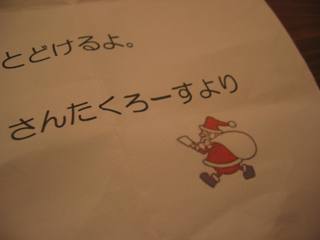 とどけるよ。
さんたくろーすより